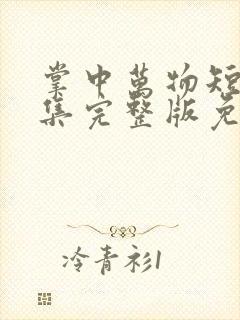 掌中萬物短
集完整版免
冷青衫1